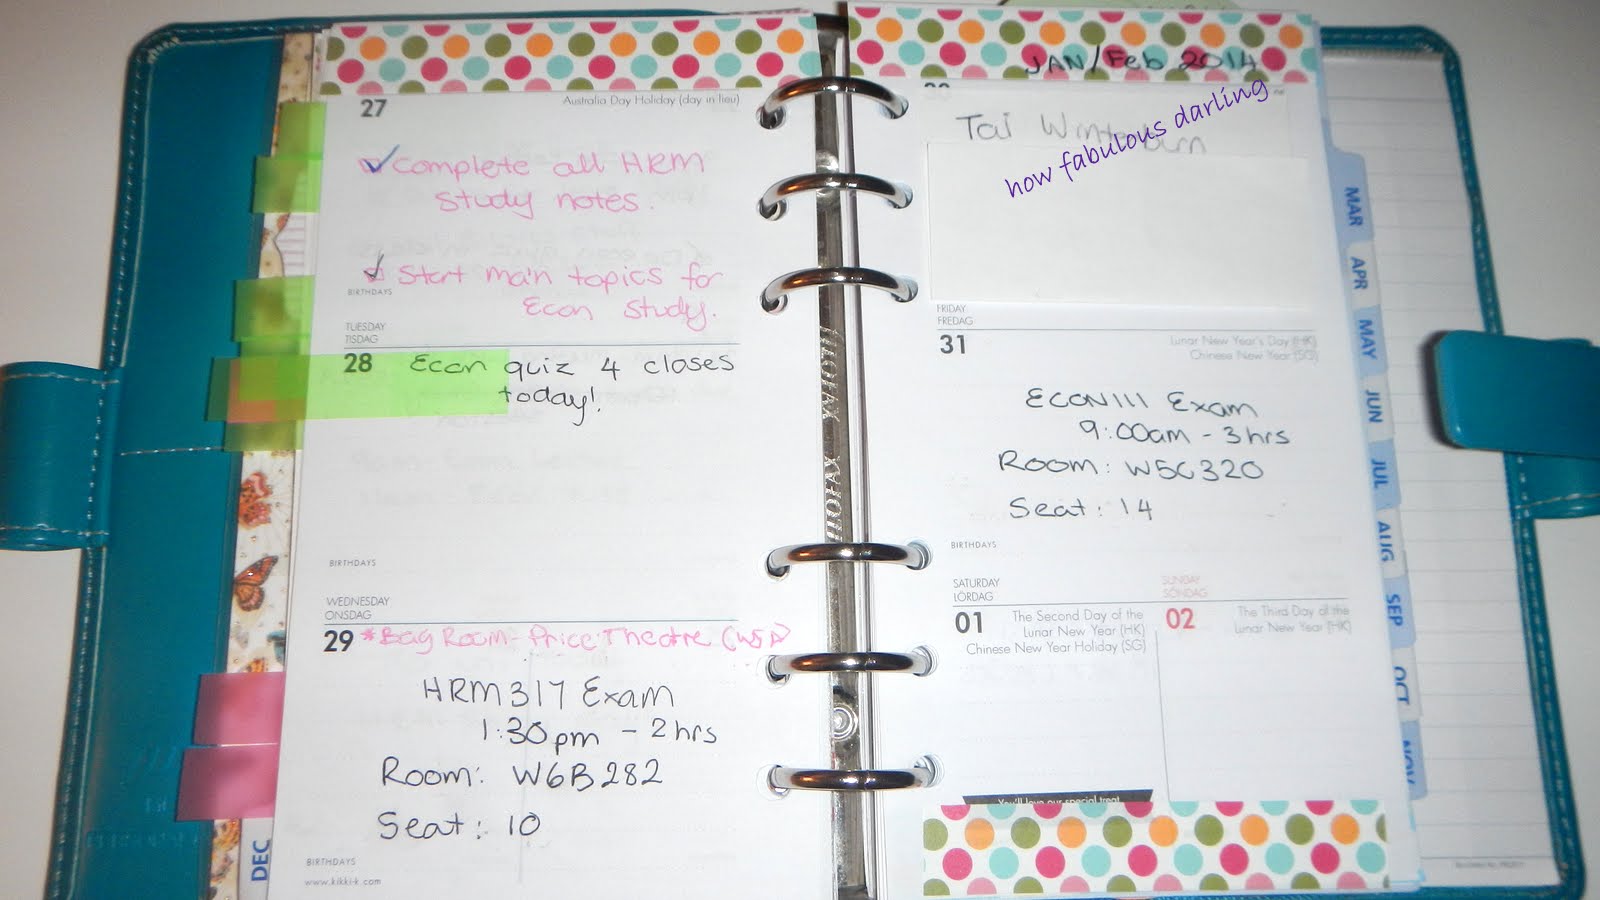 27
Australia Day Holiday (day in lieu)
Complete all HRM
study notes.
Start main topics for
Econ study.
BIRTHDAYS
TUESDAY
TISDAG
28
Econ quiz 4 closes
today!
BIRTHDAYS
WEDNESDAY
ONSDAG
29
*Bag Room - Price Theatre
HRM317 Exam
1:30pm - 2hrs
Room: W6B282
Seat: 10
BIRTHDAYS
www.kikki-k.com
DEC
FILOFAX
FILOFAX
JAN/Feb 2014
how fabulous darling
Tai
FRIDAY
FREDAG
31
Lunar New Year's Day (HK)
Chinese New Year (SG)
ECON111 Exam
9:00am - 3hrs
Room: W5C320
Seat: 14
BIRTHDAYS
SATURDAY
LÖRDAG
01
The Second Day of the
Lunar New Year (HK)
Chinese New Year Holiday (SG)
SUNDAY
SÖNDAG
02
The Third Day of the
Lunar New Year (HK)
You'll love our special treat
MAR
APR
MAY
JUN
JUL
AUG
SEP
OCT
NOV